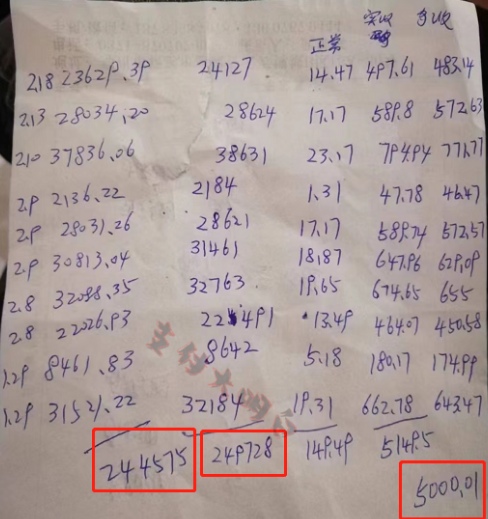 正常 实收 多收
2.18 23629.39 24127 14.47 497.61 483.14
2.13 28034.20 28624 17.17 589.8 572.63
2.10 37836.06 38631 23.17 794.94 771.77
2.9 2136.22 2184 1.31 47.78 46.47
2.9 28031.26 28621 17.17 589.74 572.57
2.9 30813.04 31461 18.87 647.96 629.09
2.8 32088.35 32763 19.65 674.65 655
2.8 22026.93 22491 13.49 464.07 450.58
1.29 8461.83 8642 5.18 180.17 174.99
1.29 31521.22 32184 19.31 662.78 643.47
244575 249728 149.49 5149.5
5000.01
支付大